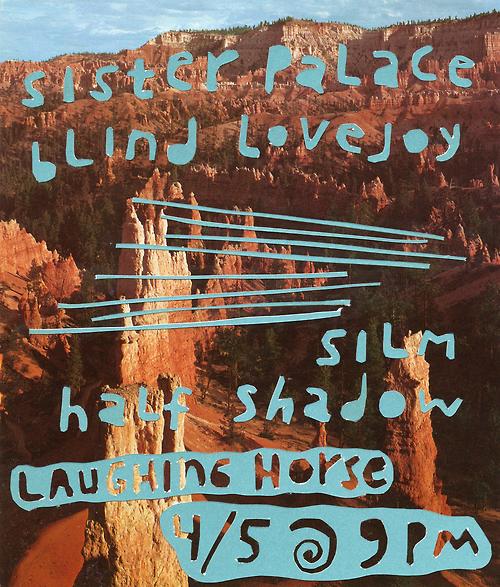 sister palace
blind lovejoy
silm
half shadow
LAUGHING HORSE
4/5 @ 9PM